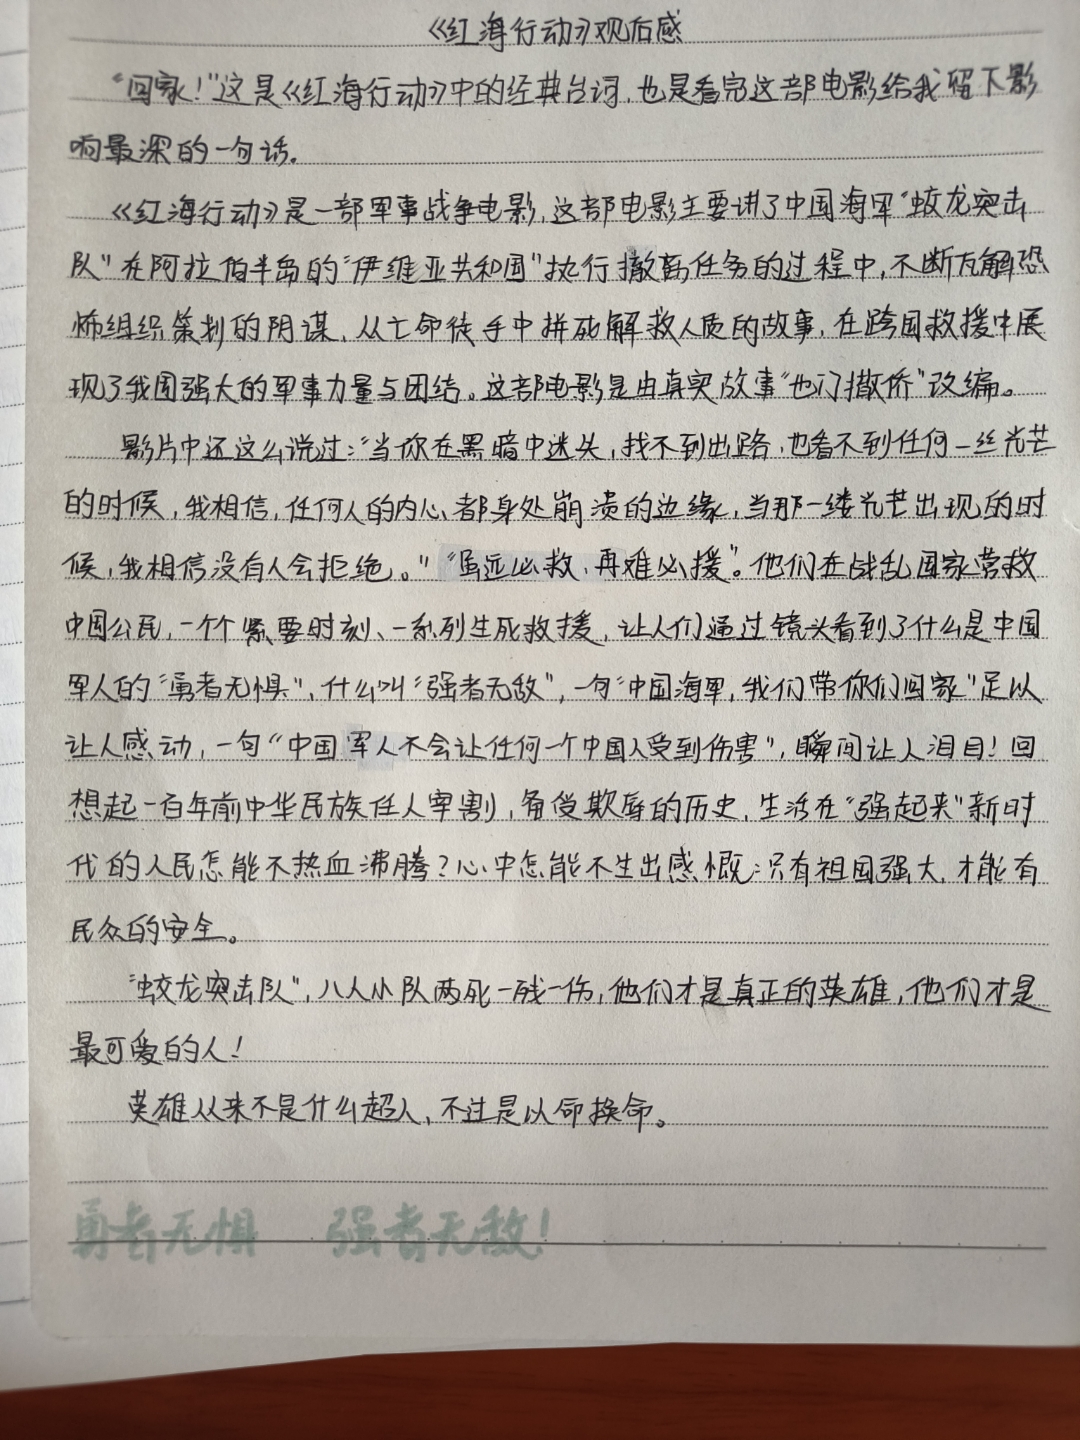 《红海行动》观后感
“回家！”这是《红海行动》中的经典台词，也是看完这部电影给我留下影
响最深的一句话.
《红海行动》是一部军事战争电影，这部电影主要讲了中国海军“蛟龙突击
队”在阿拉伯半岛的“伊维亚共和国”执行撤离任务的过程中，不断瓦解恐
怖组织策划的阴谋，从亡命徒手中拼死解救人质的故事，在跨国救援中展
现了我国强大的军事力量与团结。这部电影是由真实故事“也门撤侨”改编。
影片中还这么说过：“当你在黑暗中迷失，找不到出路，也看不到任何一丝光芒
的时候，我相信，任何人的内心都身处崩溃的边缘，当那一缕光芒出现的时
候，我相信没有人会拒绝。”“虽远必救，再难必援”。他们在战乱国家营救
中国公民，一个个紧要时刻、一系列生死救援，让人们通过镜头看到了什么是中国
军人的“勇者无惧”，什么叫“强者无敌”，一句“中国海军，我们带你们回家”足以
让人感动，一句“中国军人不会让任何一个中国人受到伤害”，瞬间让人泪目！回
想起一百年前中华民族任人宰割，备受欺辱的历史，生活在“强起来”新时
代的人民怎能不热血沸腾？心中怎能不生出感慨：只有祖国强大，才能有
民众的安全。
“蛟龙突击队”，八人小队两死一残一伤，他们才是真正的英雄，他们才是
最可爱的人！
英雄从来不是什么超人，不过是以命换命。
勇者无惧 强者无敌！